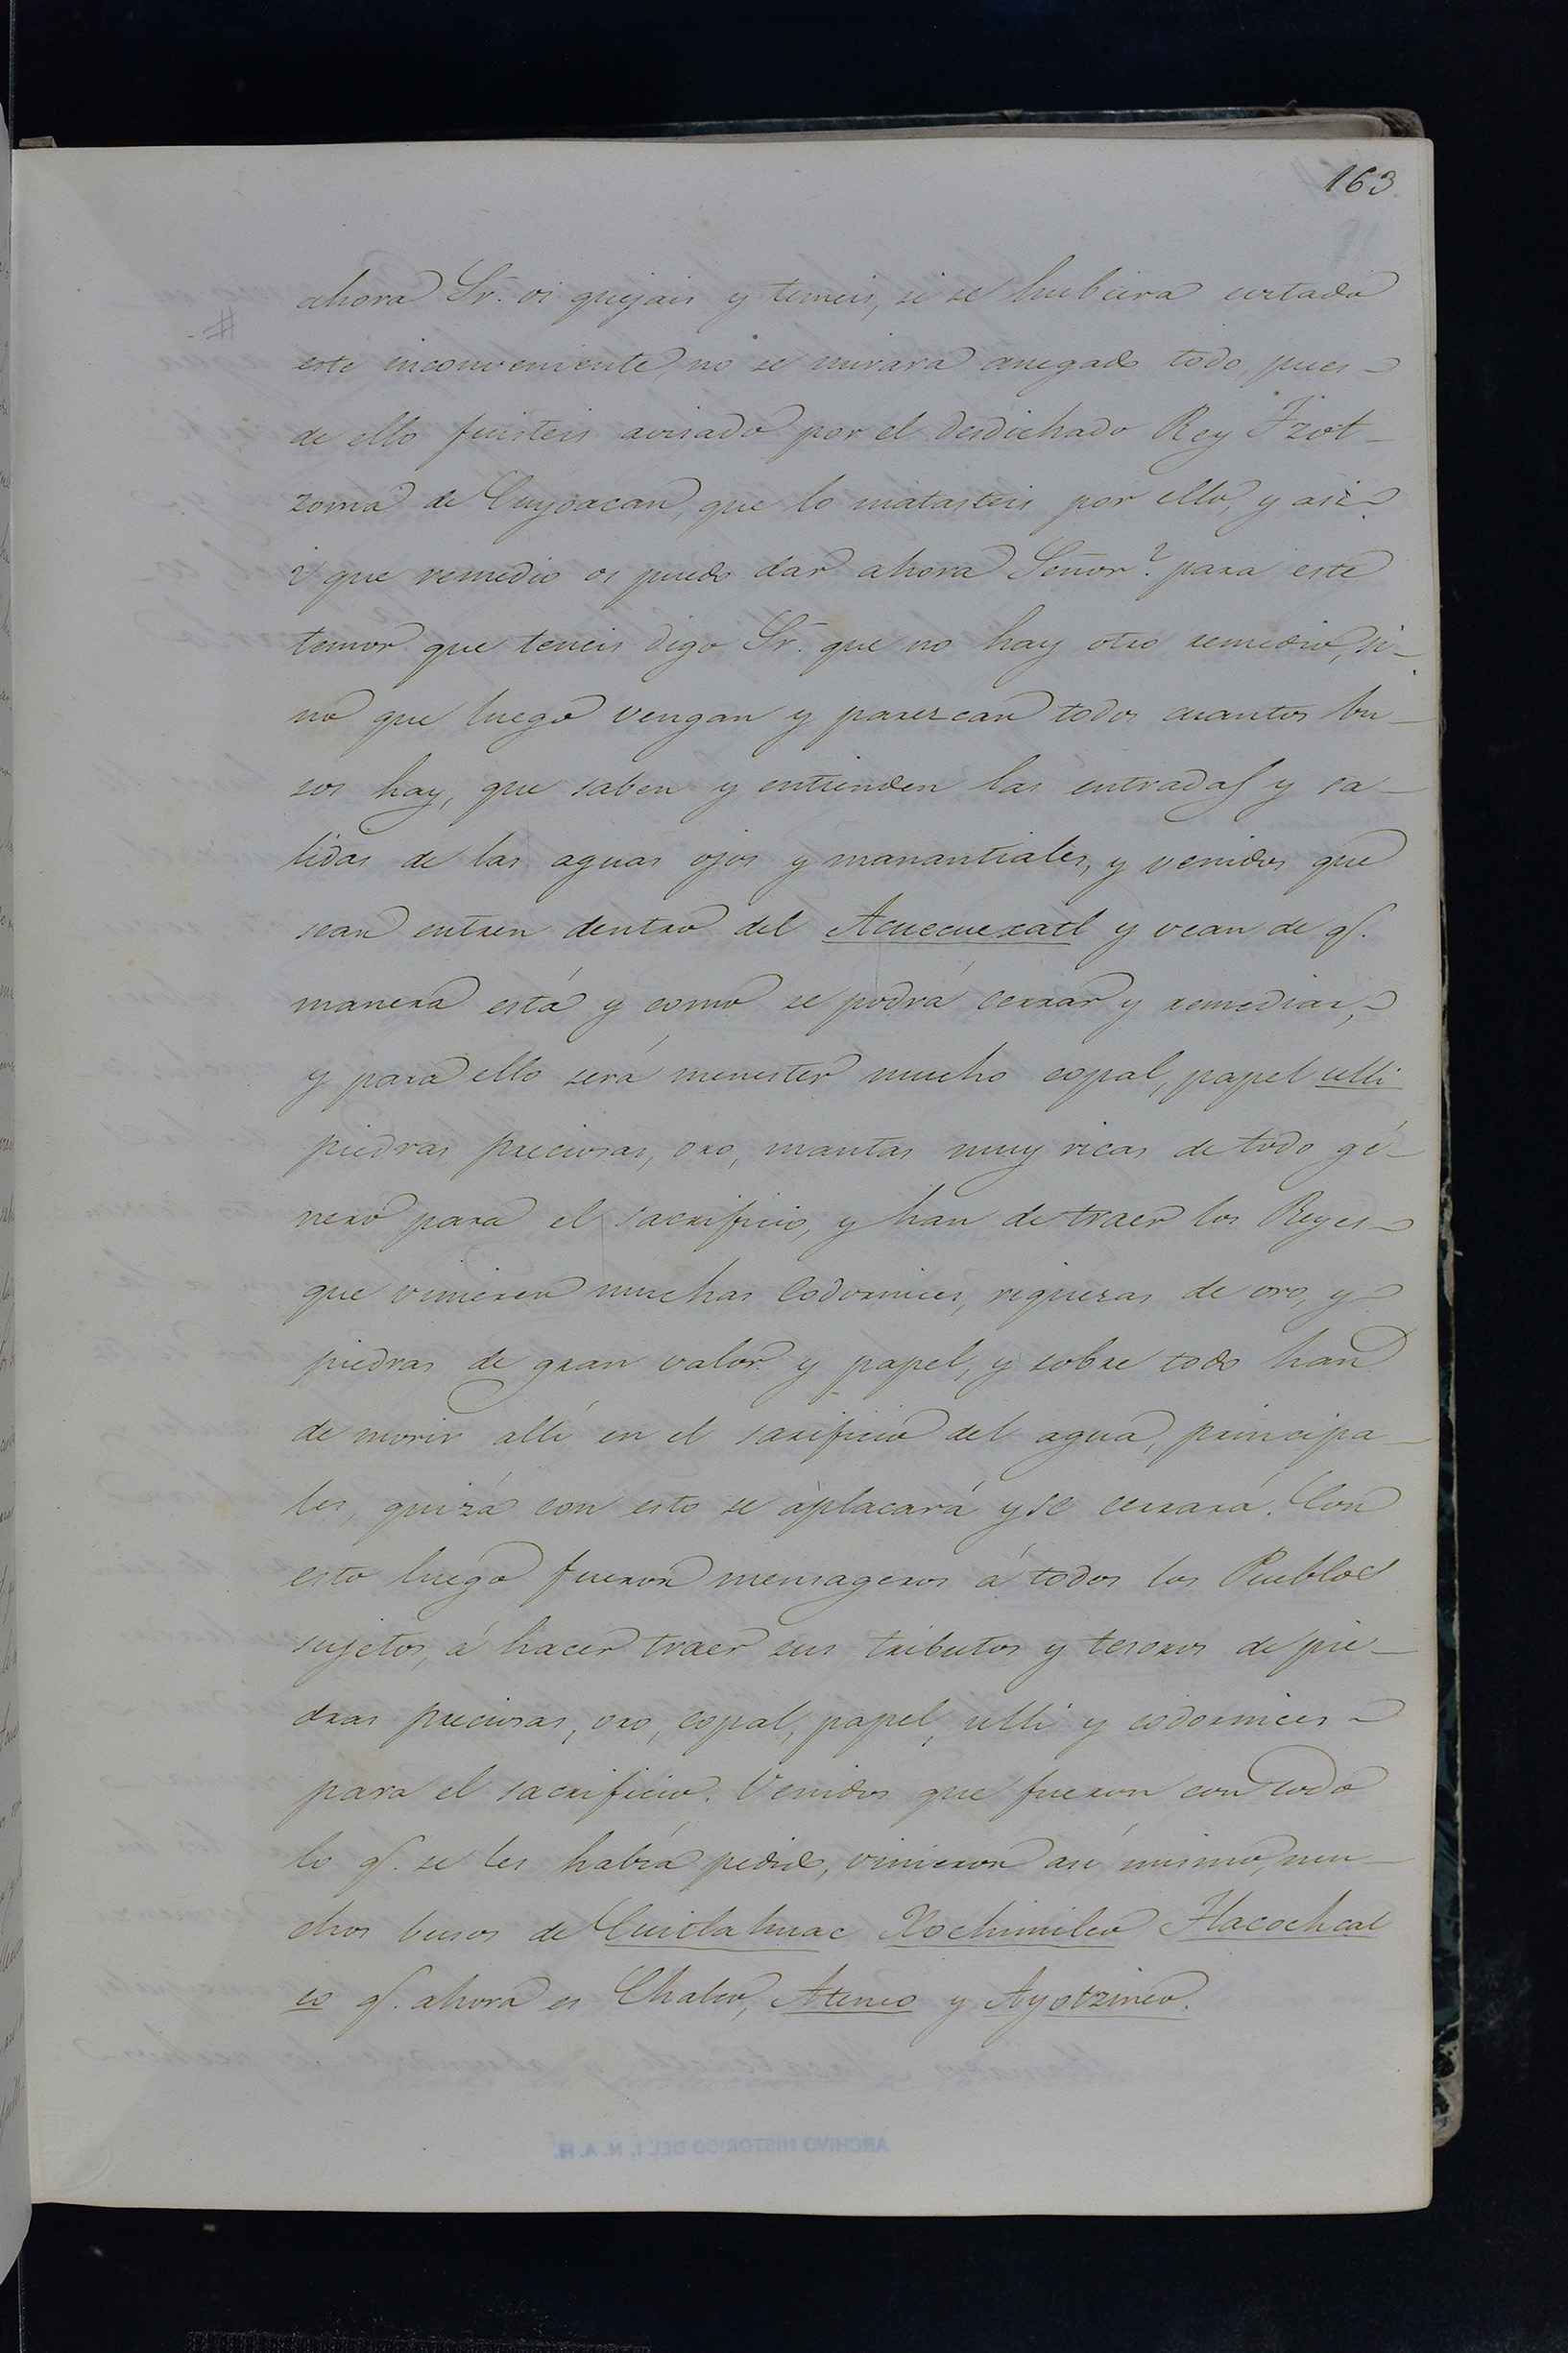 163.
ahora Sr. os quejais y temeis, si se hubiera evitado
este inconveniente, no se mirara anegado todo, pues
de ello fuisteis avisado por el desdichado Rey Tzot-
zoma de Cuyoacan, que lo matasteis por ello, y asi
¿ que remedio os puedo dar ahora Señor? para este
temor que teneis digo Sr. que no hay otro remedio, si-
no que luego vengan y parezcan todos cuantos bu-
sos hay, que saben y entienden las entradas y sa-
lidas de las aguas ojos y manantiales, y venidos que
sean entren dentro del Acuecuexatl y vean de q.
manera está y como se podrá cerrar y remediar,
y para ello será menester mucho copal, papel ulli
piedras preciosas, oro, mantas muy ricas de todo gé-
nero para el sacrificio, y han de traer los Reyes
que vinieren muchas Codornices, riquezas de oro, y
piedras de gran valor y papel, y sobre todo han
de morir allí en el sacrificio del agua, principa-
les, quizá con esto se aplacará y se cerrará. Con
esto luego fueron mensageros á todos los Pueblos
sujetos, á hacer traer sus tributos y tesoros de pie-
dras preciosas, oro, copal, papel, ulli y codornices
para el sacrificio. Venidos que fueron con todo
lo q. se les había pedido, vinieron así mismo, mu-
chos busos de Cuitlahuac Xochimilco Tlacochcal
co q. ahora es Chalco, Atenco y Ayotzinco.
ARCHIVO HISTORICO DEL I. N. A. H.